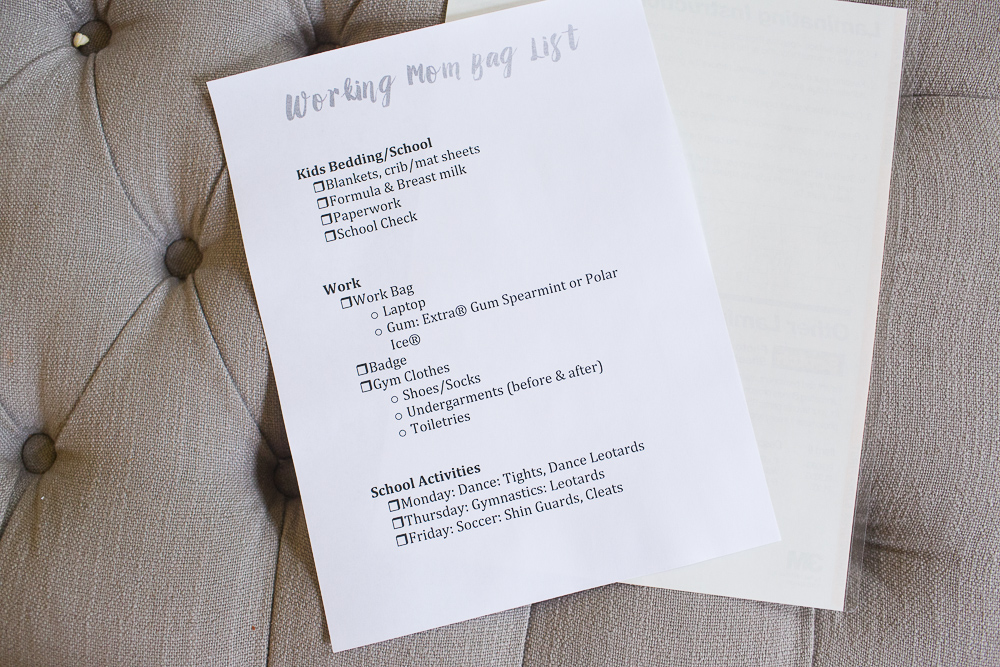 Working Mom Bag List
Kids Bedding/School
❒Blankets, crib/mat sheets
❒Formula & Breast milk
❒Paperwork
❒School Check
Work
❒Work Bag
○ Laptop
○ Gum: Extra® Gum Spearmint or Polar
Ice®
❒Badge
❒Gym Clothes
○ Shoes/Socks
○ Undergarments (before & after)
○ Toiletries
School Activities
❒Monday: Dance: Tights, Dance Leotards
❒Thursday: Gymnastics: Leotards
❒Friday: Soccer: Shin Guards, Cleats
Laminating Instruc
3M